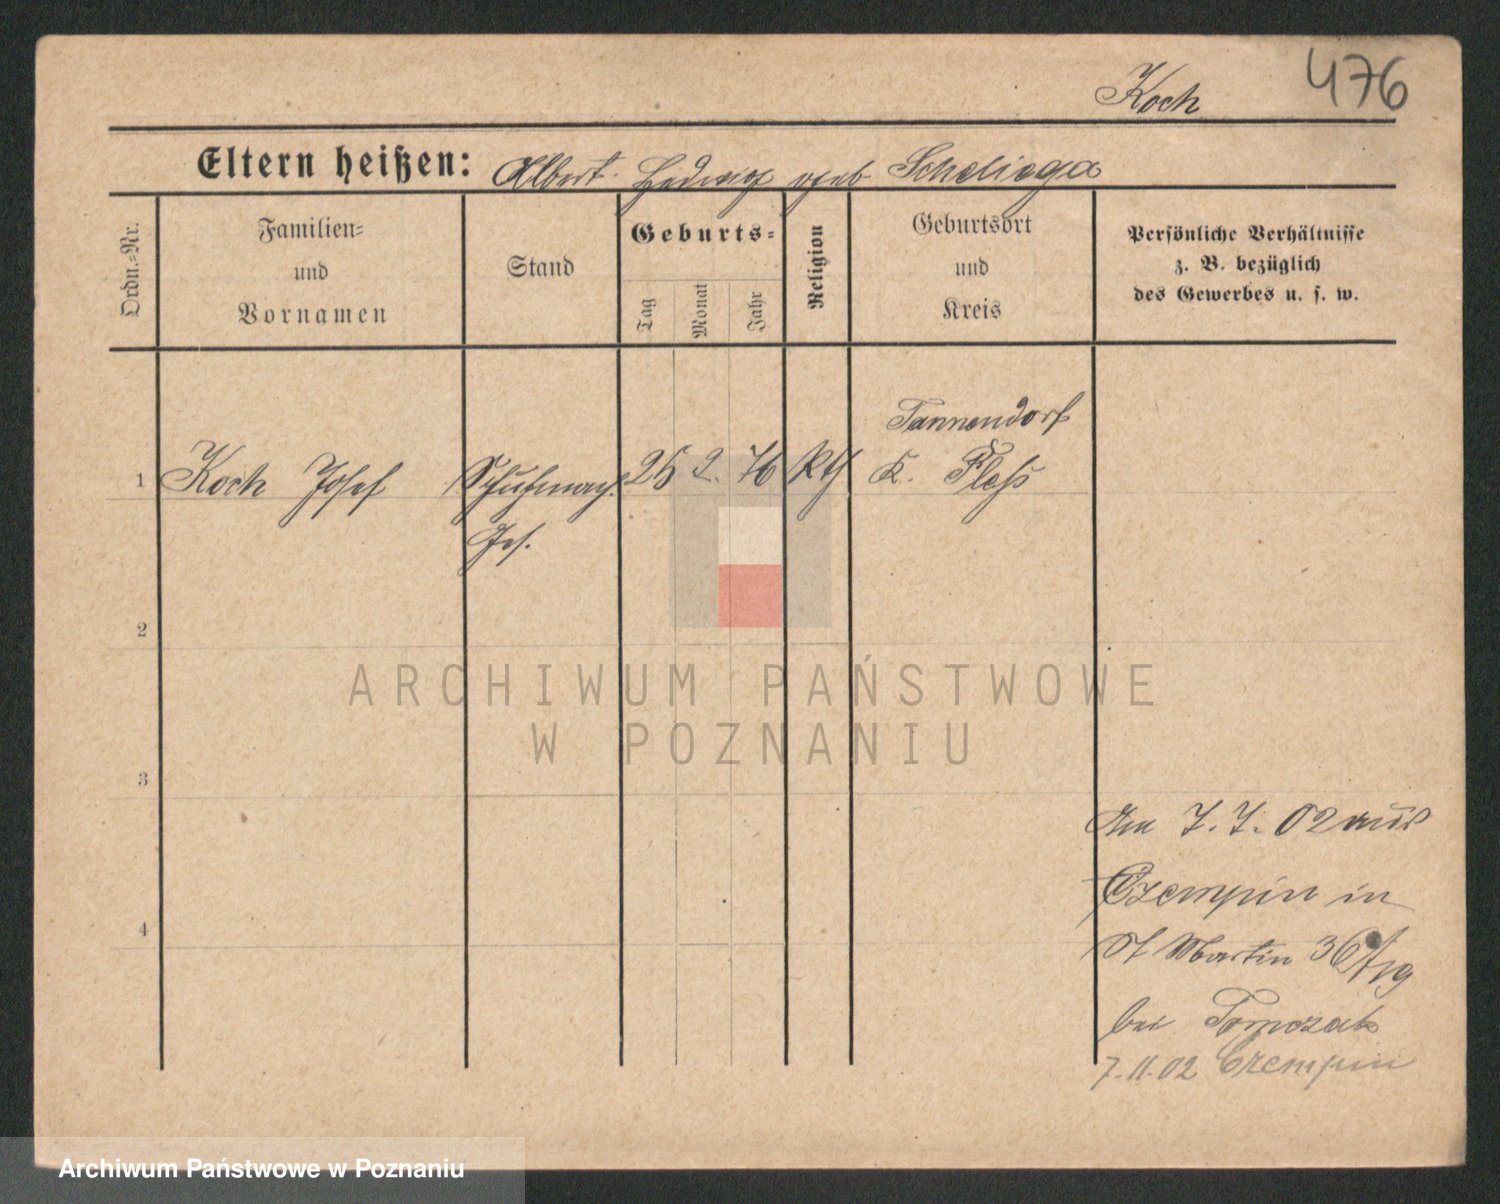 476
Koch
Eltern heißen: Albert Hedwig geb Scheliega
Ordn.-Nr.
Familien- und Vornamen
Stand
Geburts-
Tag
Monat
Jahr
Religion
Geburtsort und Kreis
Persönliche Verhältnisse
z. B. bezüglich
des Gewerbes u. s. w.
Tannendorf
1 Koch Josef Schuhmach. 26 2. 76 Kth K. Pless
Ges.
2
3
4
Am 7. 7. 02 aus
Czempin in
St Martin 36
bei Tomczak
7.11.02 Czempin
ARCHIWUM PAŃSTWOWE
W POZNANIU
Archiwum Państwowe w Poznaniu